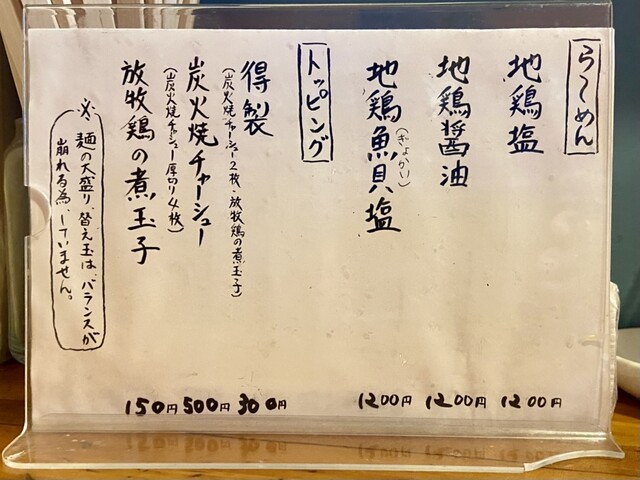 らーめん
地鶏塩
1200円
地鶏醤油
1200円
地鶏魚貝塩
(ぎょかい)
1200円
トッピング
得製
(炭火焼チャーシュー2枚・放牧鶏の煮玉子)
300円
炭火焼チャーシュー
(炭火焼チャーシュー厚切り4枚)
500円
放牧鶏の煮玉子
150円
※ 麺の大盛り、替え玉は、バランスが
崩れる為していません。